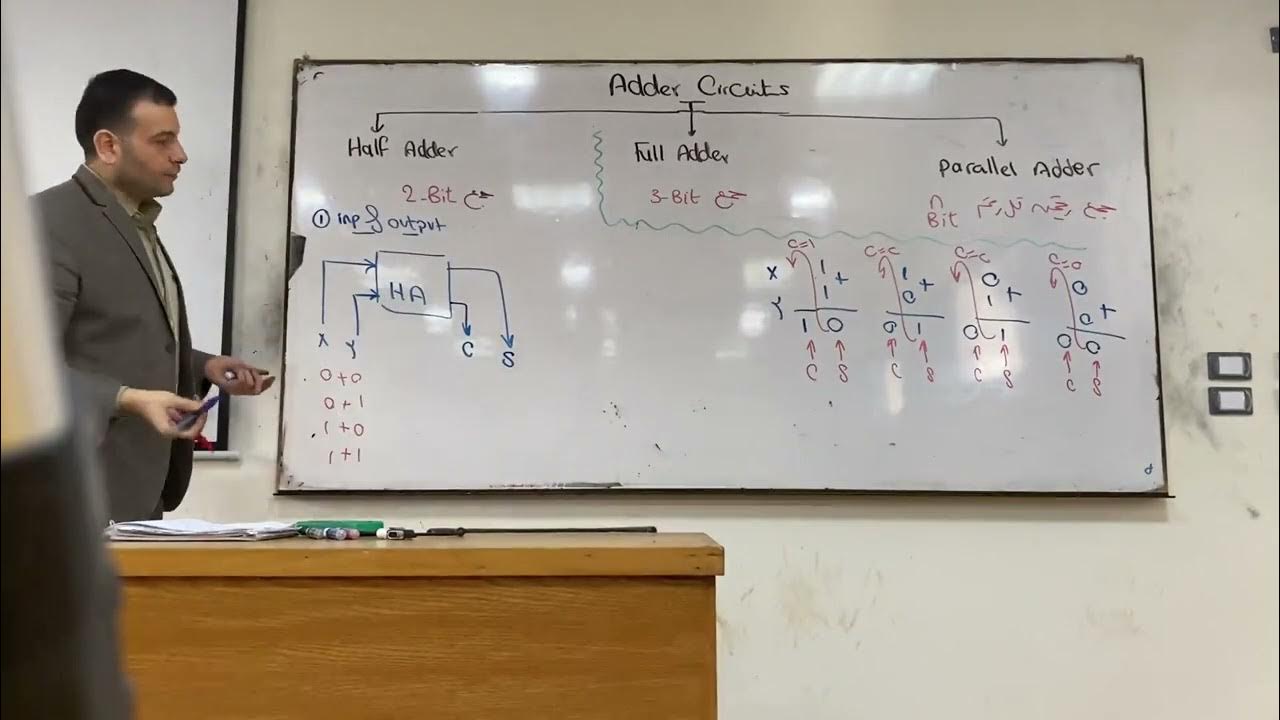 Adder Circuits
Half Adder
Full Adder
Parallel Adder
2-Bit جمع
3-Bit جمع
n Bit
جمع
① inp of output
HA
X Y C S
0+0
0+1
1+0
1+1
C=1
X 1 +
Y 1
1 0
C S
C=c
1 +
0
0 1
C S
C=c
0
1 +
0 1
C S
C=0
0
0 +
0 0
C S